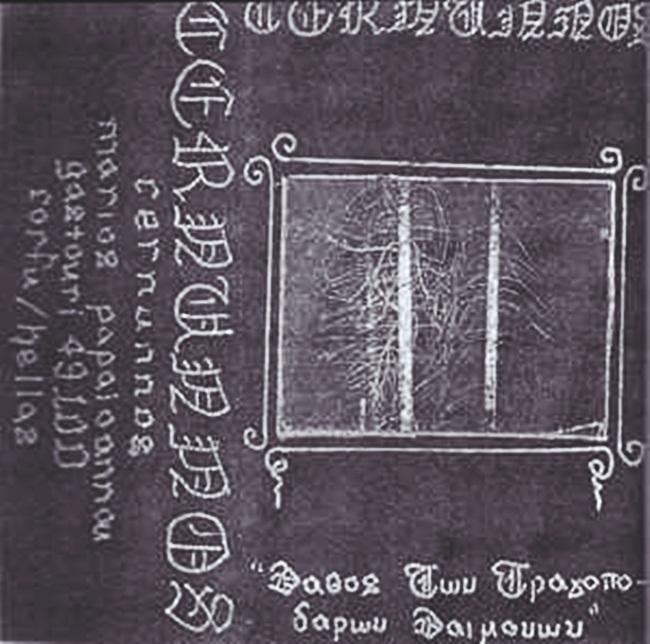 CERNUNNOS
CERNUNNOS
cernunnos
marios papaioannou
gastouri 49100
corfu/hellas
"Δασος Των Τραγοπο-
δαρων Δαιμονων"